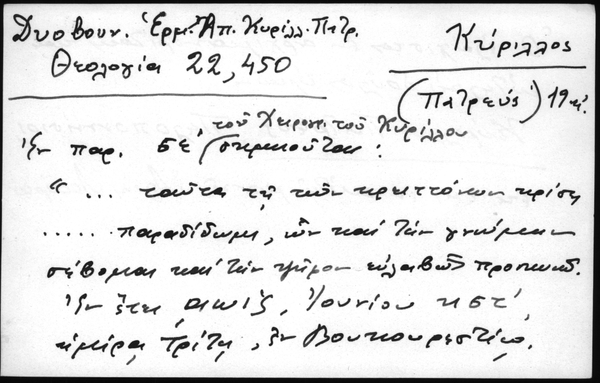 Δυοβουν. Ἑρμ. Ἀπ. Κυρίλλ. Πατρ.
Θεολογία 22, 450
Κύριλλος
(Πατρεύς) 19 αἰ.
τοῦ Χειρογρ. τοῦ Κυρίλλου
Ἐν παρ. σε σημειοῦται :
"... ταῦτα τῇ τῶν κρειττόνων κρίσει
..... παραδίδωμι, ὧν καὶ τὴν γνώμην
σέβομαι καὶ τὴν ψῆφον εὐλαβῶς προσκυν.
Ἐν ἔτει αωιζ, Ἰουνίου κστ΄,
ἡμέρᾳ Τρίτῃ, ἐν Βουκουρεστίῳ.